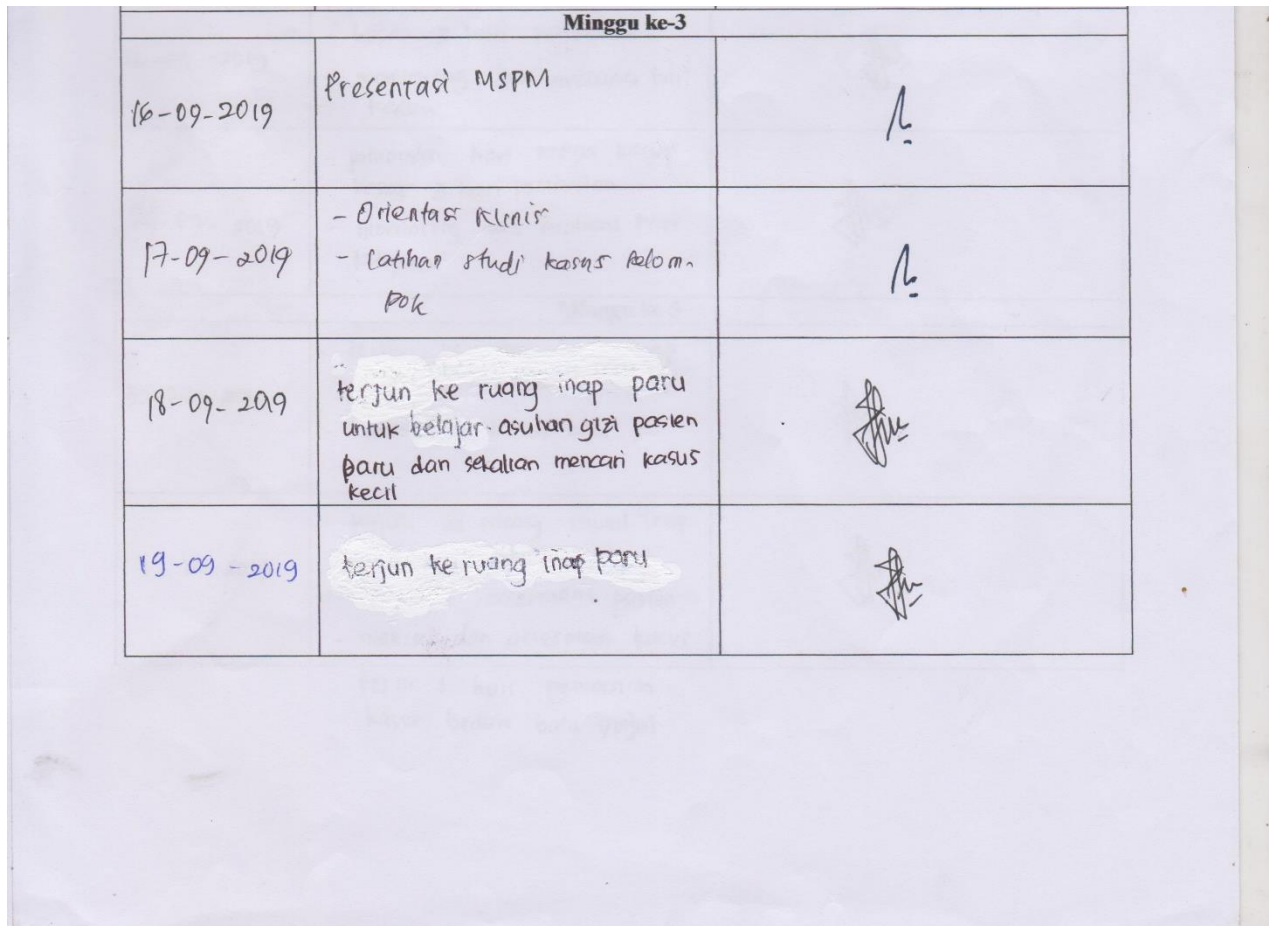 Minggu ke-3
16-09-2019
Presentasi MSPM
17-09-2019
- Orientasi Klinis
- Latihan studi kasus kelom-
pok
18-09-2019
terjun ke ruang inap paru
untuk belajar asuhan gizi pasien
paru dan sekalian mencari kasus
kecil
19-09-2019
terjun ke ruang inap paru